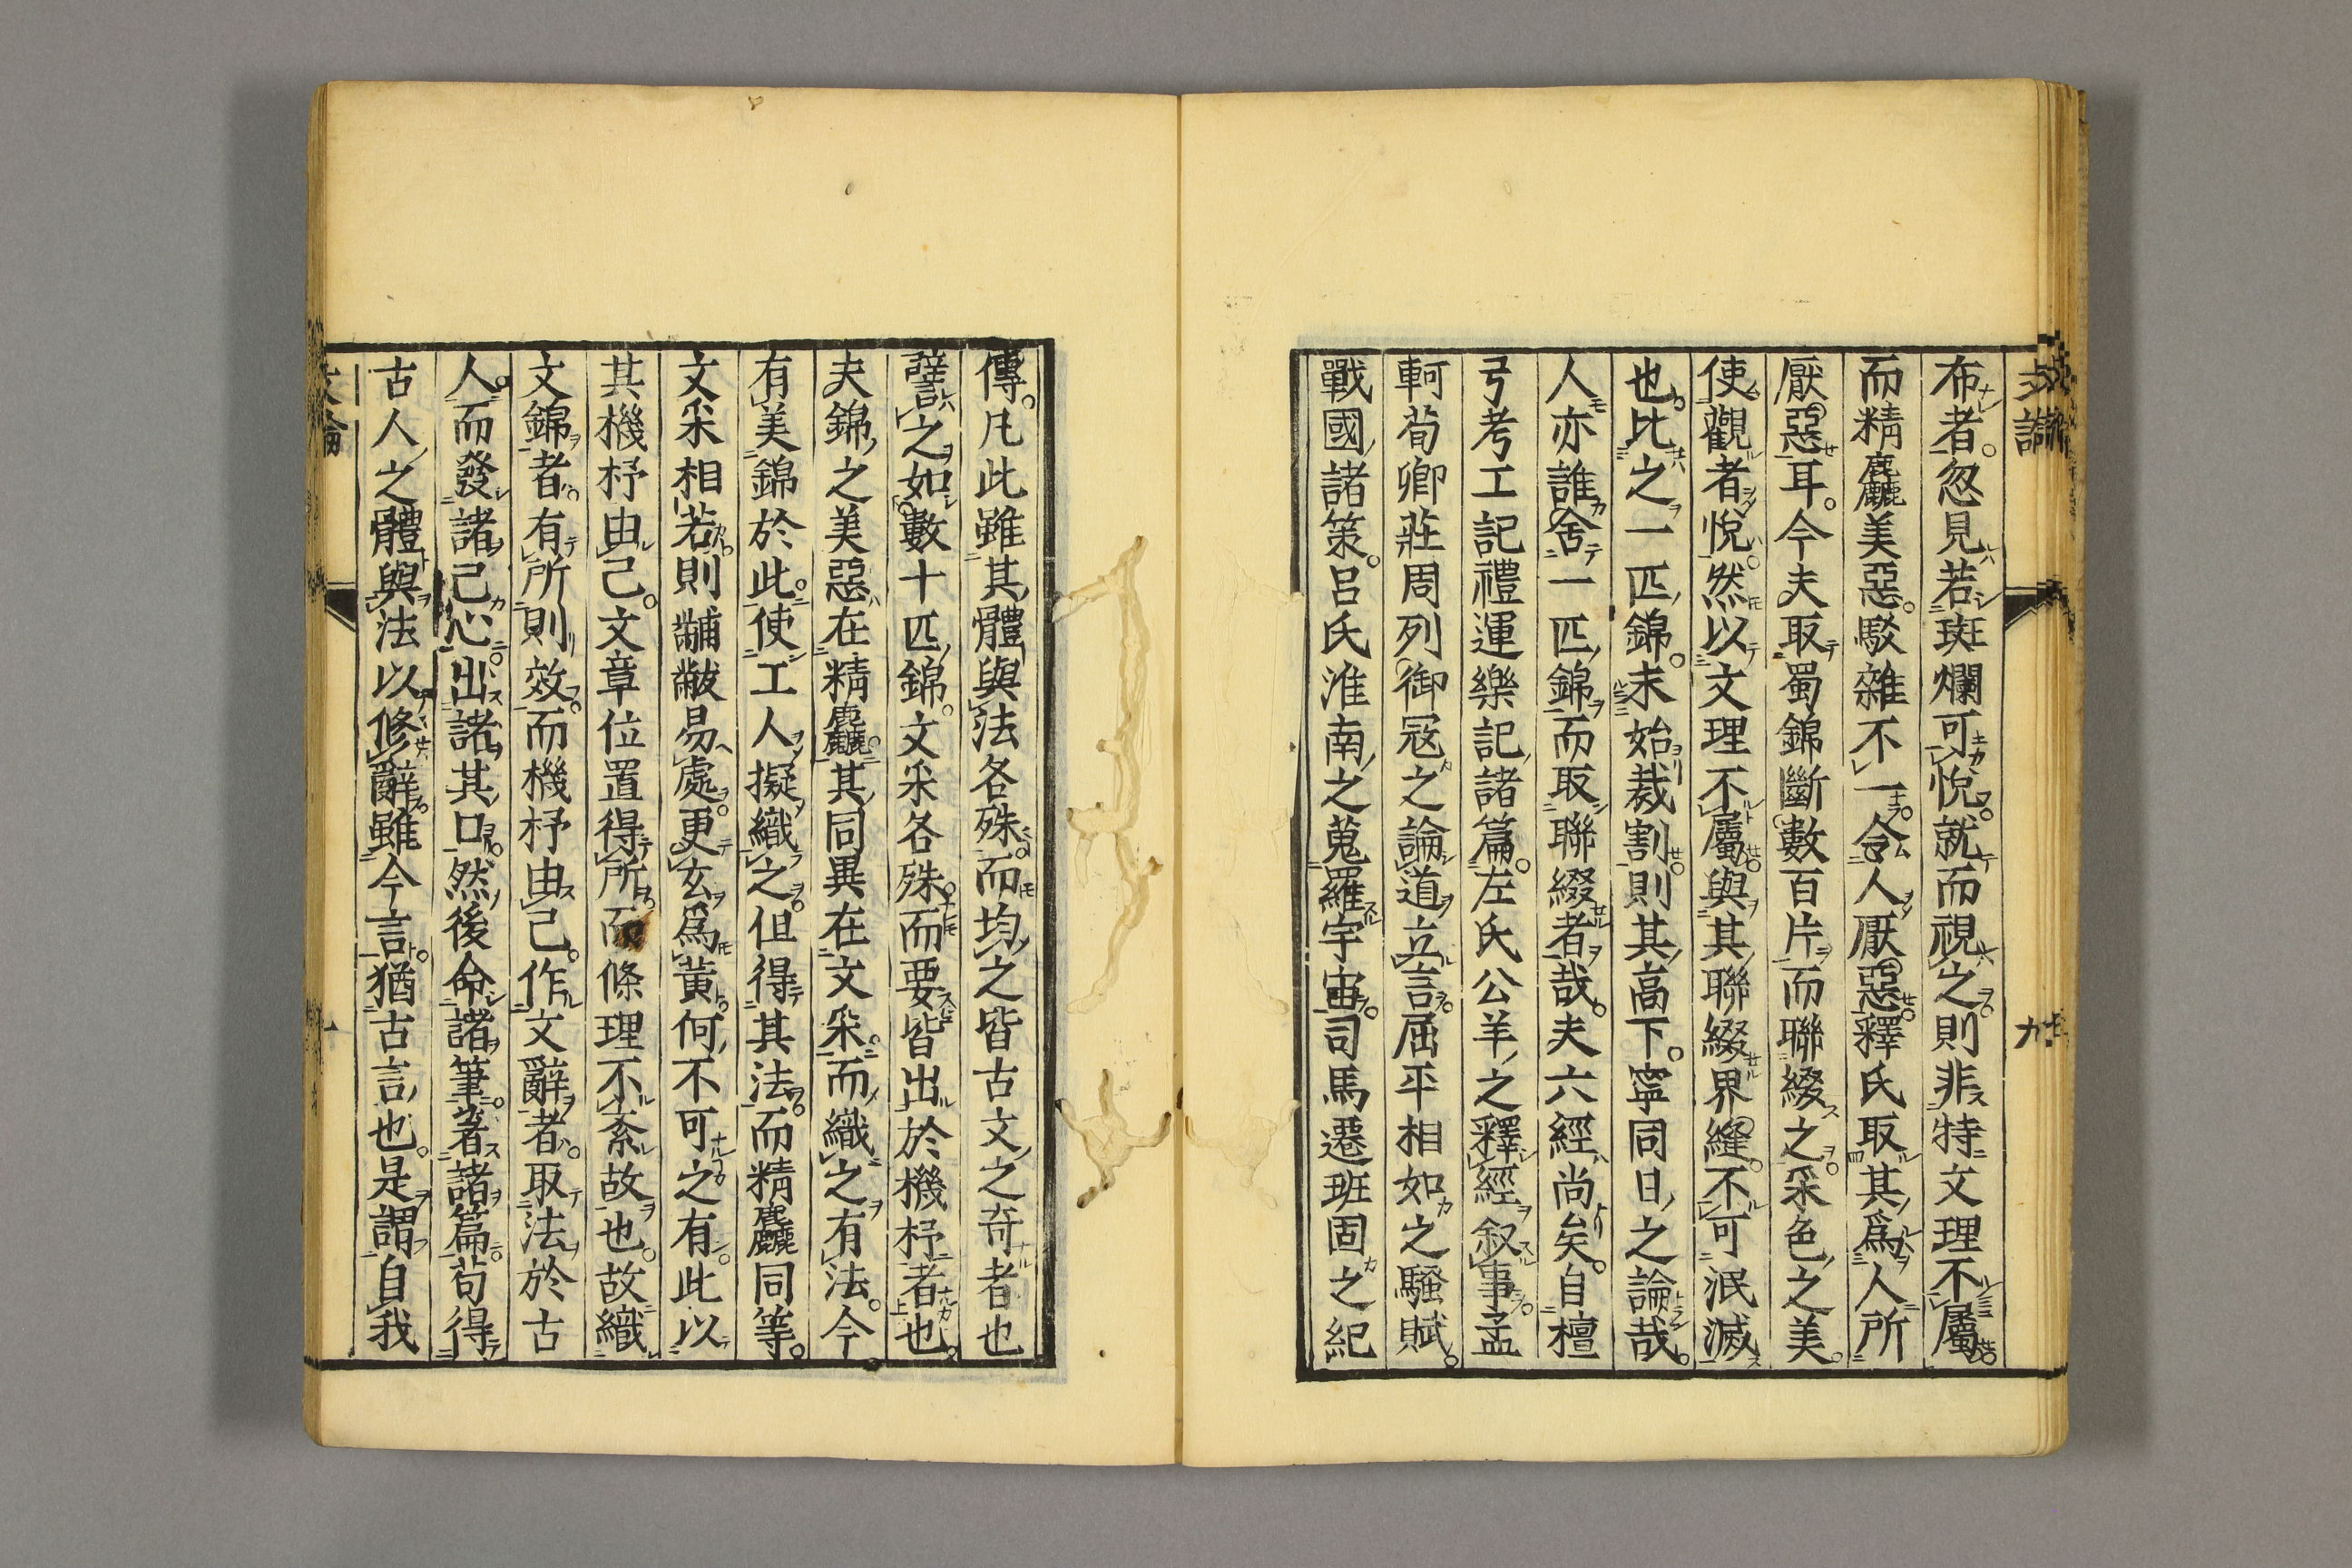 文論
布者忽見若斑爛可悅就而視之則非特文理不屬
而精麤美惡駁雜不一令人厭惡釋氏取其爲人所
厭惡耳今夫取蜀錦斷數百片而聯綴之采色之美
使觀者悅然以文理不屬與其聯綴界縫不可泯滅
也比之一匹錦未始裁割則其高下寧同日之論哉
人亦誰舍一匹錦而取聯綴者哉夫六經尚矣自檀
弓考工記禮運樂記諸篇左氏公羊之釋經叙事孟
軻荀卿莊周列御冦之論道立言屈平相如之騷賦
戰國諸策呂氏淮南之蒐羅宇宙司馬遷班固之紀
傳凡此雖其體與法各殊而均之皆古文之奇者也
譬之如數十匹錦文采各殊而要皆出於機杼者也
夫錦之美惡在精麤其同異在文采而織之有法今
有美錦於此使工人擬織之但得其法而精麤同等
文采相若則黼黻易處更玄爲黃何不可之有此以
其機杼由己文章位置得所而條理不紊故也故織
文錦者有所則效而機杼由己作文辭者取法於古
人而發諸己心出諸其口然後命諸筆著諸篇苟得
古人之體與法以修辭雖今言猶古言也是謂自我